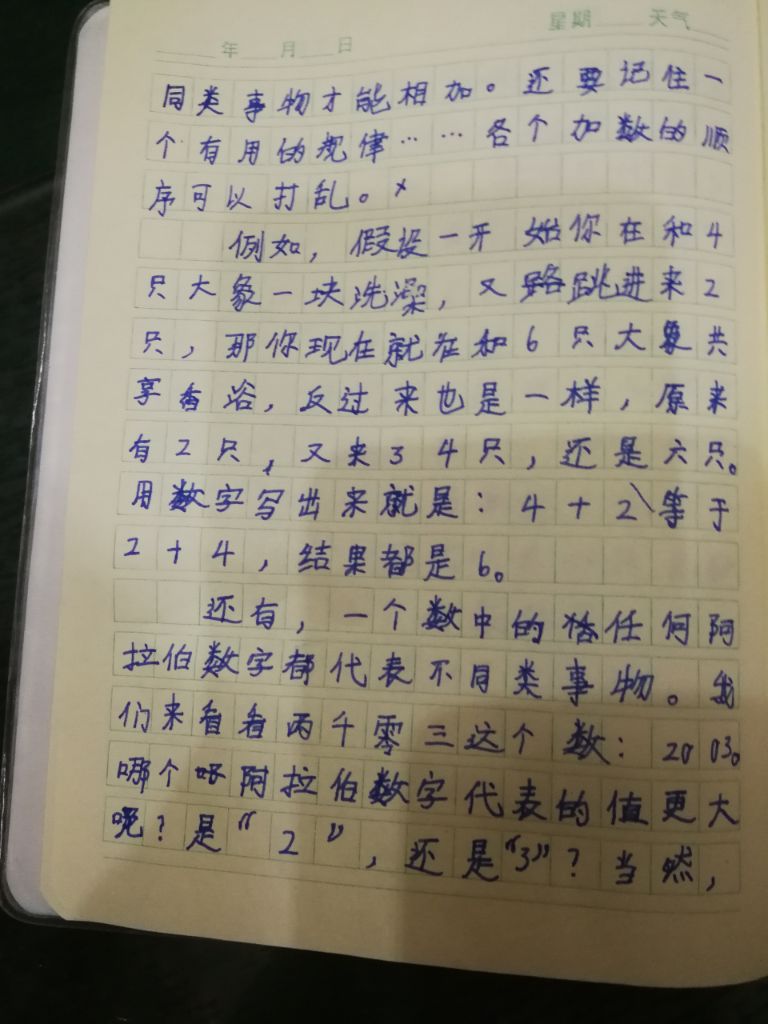 年 月 日 星期 天气
同类事物才能相加。还要记住一
个有用的规律……各个加数的顺
序可以打乱。
例如，假设一开始你在和4
只大象一块洗澡，又跳进来2
只，那你现在就在和6只大象共
享香浴，反过来也是一样，原来
有2只，又来3 4只，还是六只。
用数字写出来就是：4+2等于
2+4，结果都是6。
还有，一个数中的任何阿
拉伯数字都代表不同类事物。我
们来看看两千零三这个数：2003。
哪个阿拉伯数字代表的值更大
呢？是“2”，还是“3”？当然，